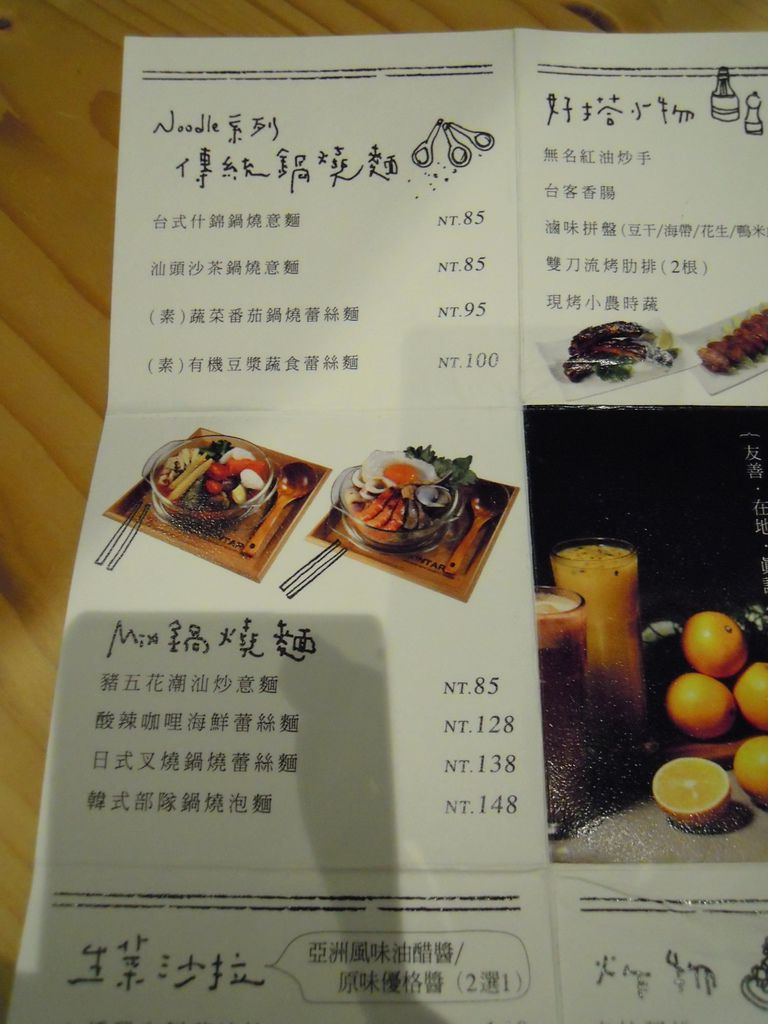 Noodle系列
傳統鍋燒麵
台式什錦鍋燒意麵 NT.85
汕頭沙茶鍋燒意麵 NT.85
(素)蔬菜番茄鍋燒蕾絲麵 NT.95
(素)有機豆漿蔬食蕾絲麵 NT.100
Mix鍋燒麵
豬五花潮汕炒意麵 NT.85
酸辣咖哩海鮮蕾絲麵 NT.128
日式叉燒鍋燒蕾絲麵 NT.138
韓式部隊鍋燒泡麵 NT.148
生菜沙拉
亞洲風味油醋醬/
原味優格醬 (2選1)
好搭小物
無名紅油炒手
台客香腸
滷味拼盤(豆干/海帶/花生/鴨米
雙刀流烤肋排(2根)
現烤小農時蔬
友善·在地·真